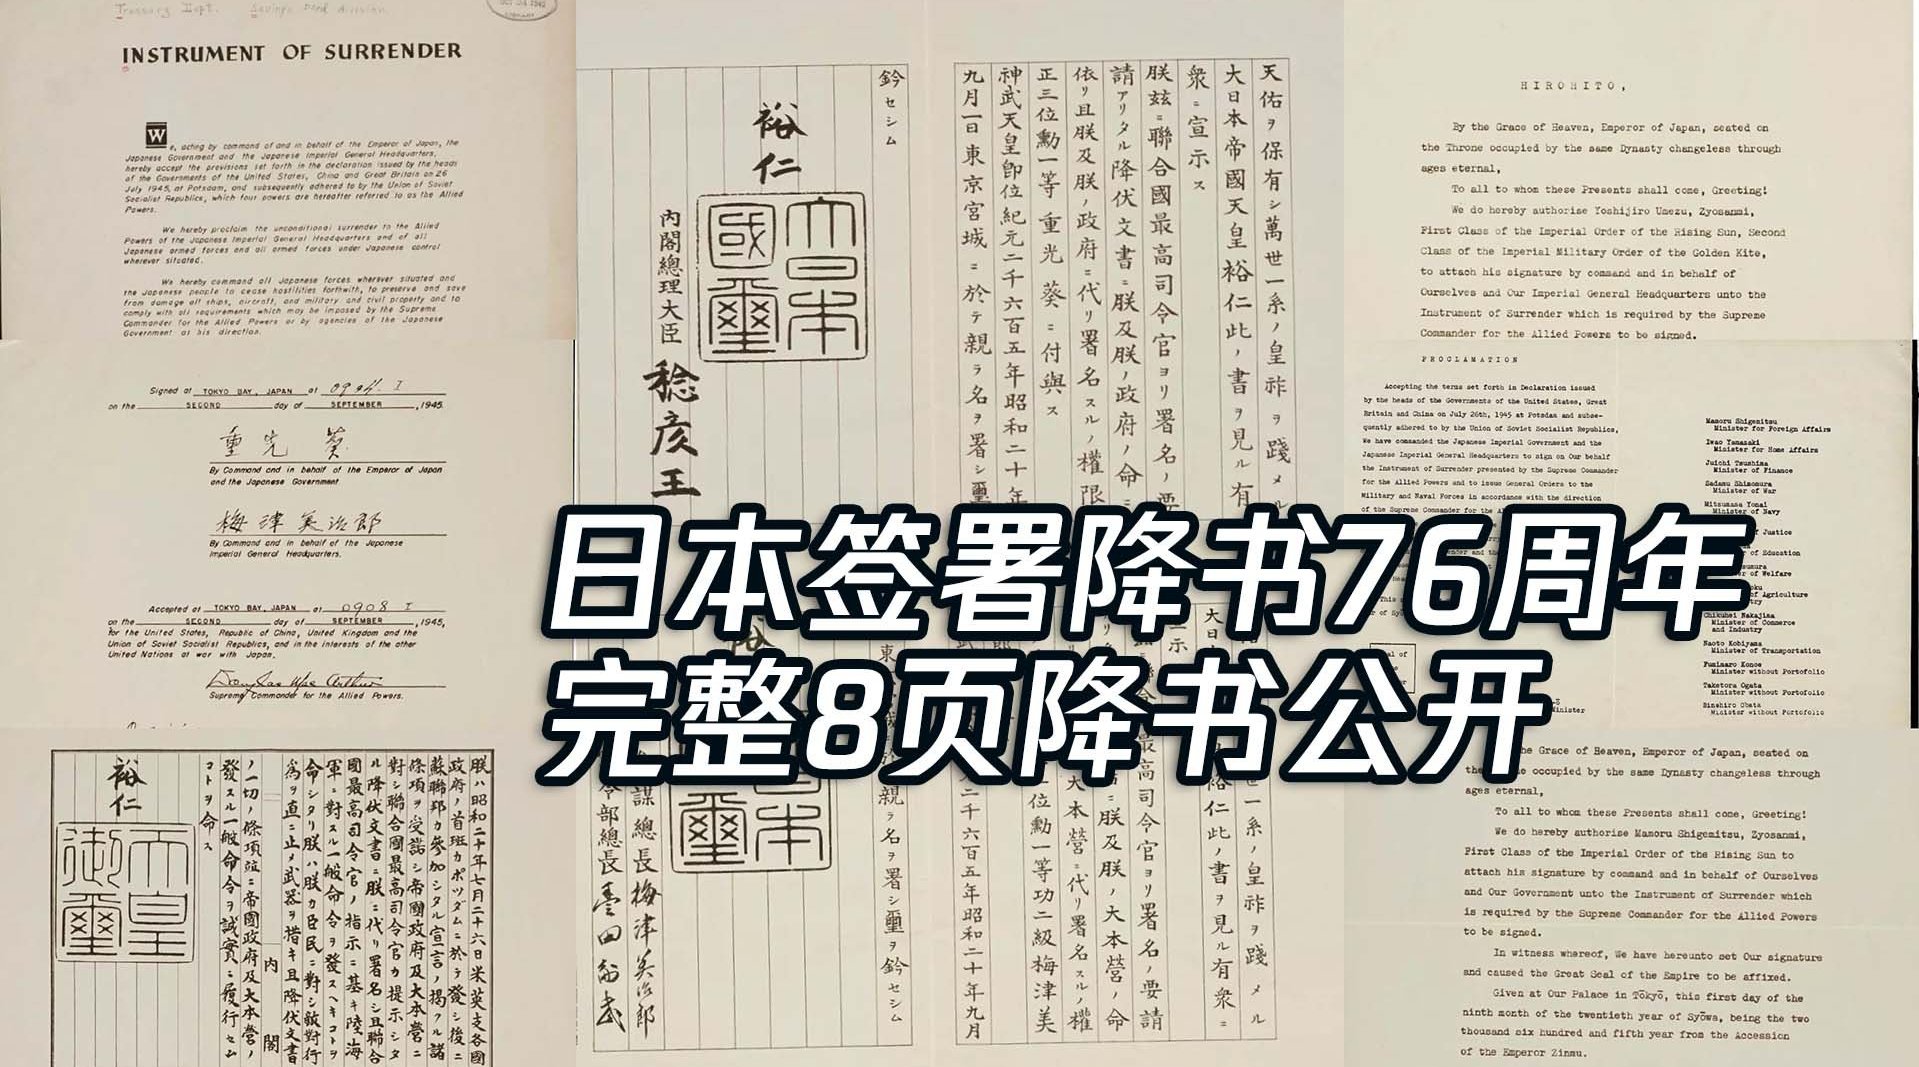 Treasury Dept. Savings Bond Division
INSTRUMENT OF SURRENDER
We, acting by command of and in behalf of the Emperor of Japan, the
Japanese Government and the Japanese Imperial General Headquarters,
hereby accept the provisions set forth in the declaration issued by the heads
of the Governments of the United States, China and Great Britain on 26
July 1945, at Potsdam, and subsequently adhered to by the Union of Soviet
Socialist Republics, which four powers are hereafter referred to as the Allied
Powers.
We hereby proclaim the unconditional surrender to the Allied
Powers of the Japanese Imperial General Headquarters and of all
Japanese armed forces and all armed forces under Japanese control
wherever situated.
We hereby command all Japanese forces wherever situated and
the Japanese people to cease hostilities forthwith, to preserve and save
from damage all ships, aircraft, and military and civil property and to
comply with all requirements which may be imposed by the Supreme
Commander for the Allied Powers or by agencies of the Japanese
Government at his direction.
Signed at TOKYO BAY, JAPAN at 0904 I
on the SECOND day of SEPTEMBER, 1945.
重光葵
By Command and in behalf of the Emperor of Japan
and the Japanese Government
梅津美治郎
By Command and in behalf of the Japanese
Imperial General Headquarters.
Accepted at TOKYO BAY, JAPAN at 0908 I
on the SECOND day of SEPTEMBER, 1945,
for the United States, Republic of China, United Kingdom and the
Union of Soviet Socialist Republics, and in the interests of the other
United Nations at war with Japan.
Douglas MacArthur
Supreme Commander for the Allied Powers.
朕ハ昭和二十年七月二十六日米英支各國
政府ノ首班カポツダムニ於テ發シ後ニ
蘇聯邦カ參加シタル宣言ノ掲クル諸
條項ヲ受諾シ帝國政府及大本營ニ
對シ聯合國最高司令官カ提示シタ
ル降伏文書ニ朕ニ代リ署名シ且聯合
國最高司令官ノ指示ニ基キ陸海
軍ニ對スル一般命令ヲ發スヘキコトヲ
命シタリ朕ハ朕カ臣民ニ對シ敵對行
爲ヲ直ニ止メ武器ヲ措キ且降伏文書
ノ一切ノ條項竝ニ帝國政府及大本營ノ
發スル一般命令ヲ誠實ニ履行セム
コトヲ命ス
裕仁
天皇御璽
内閣
天佑ヲ保有シ萬世一系ノ皇祚ヲ踐メル
大日本帝國天皇裕仁此ノ書ヲ見ル有
衆ニ宣示ス
朕茲ニ聯合國最高司令官ヨリ署名ノ要
請アリタル降伏文書ニ朕及朕ノ政府ノ命ニ
依リ且朕及朕ノ政府ニ代リ署名スルノ權限
正三位勳一等重光葵ニ付與ス
神武天皇卽位紀元二千六百五年昭和二十年
九月一日東京宮城ニ於テ親ラ名ヲ署シ璽
鈐セシム
裕仁
大日本國璽
内閣總理大臣
稔彦王
世一系ノ皇祚ヲ踐メル
裕仁此ノ書ヲ見ル有衆ニ
示
最高司令官ヨリ署名ノ要請
朕及朕ノ大本營ノ命
大本營ニ代リ署名スルノ權
位勳一等功二級梅津美
二千六百五年昭和二十年九月
親ラ名ヲ署シ璽ヲ鈐セシム
謀總長梅津美治郎
令部總長豊田副武
HIROHITO,
By the Grace of Heaven, Emperor of Japan, seated on
the Throne occupied by the same Dynasty changeless through
ages eternal,
To all to whom these Presents shall come, Greeting!
We do hereby authorise Yoshijiro Umezu, Zyosanmi,
First Class of the Imperial Order of the Rising Sun, Second
Class of the Imperial Military Order of the Golden Kite,
to attach his signature by command and in behalf of
Ourselves and Our Imperial General Headquarters unto the
Instrument of Surrender which is required by the Supreme
Commander for the Allied Powers to be signed.
PROCLAMATION
Accepting the terms set forth in Declaration issued
by the heads of the Governments of the United States, Great
Britain and China on July 26th, 1945 at Potsdam and subse-
quently adhered to by the Union of Soviet Socialist Republics,
We have commanded the Japanese Imperial Government and the
Japanese Imperial General Headquarters to sign on Our behalf
the Instrument of Surrender presented by the Supreme Commander
for the Allied Powers and to issue General Orders to the
Military and Naval Forces in accordance with the direction
of the Supreme Commander for the
Mamoru Shigemitsu
Minister for Foreign Affairs
Iwao Yamazaki
Minister for Home Affairs
Juichi Tsushima
Minister of Finance
Sadamu Shimomura
Minister of War
Mitsumasa Yonai
Minister of Navy
of Justice
of Education
of Welfare
of Agriculture
Chikuhei Nakajima
Minister of Commerce
and Industry
Naoto Kobiyama
Minister of Transportation
Fumimaro Konoe
Minister without Portofolio
Taketora Ogata
Minister without Portofolio
Binshiro Obata
Minister without Portofolio
日本签署降书76周年
完整8页降书公开
the Grace of Heaven, Emperor of Japan, seated on
occupied by the same Dynasty changeless through
ages eternal,
To all to whom these Presents shall come, Greeting!
We do hereby authorise Mamoru Shigemitsu, Zyosanmi,
First Class of the Imperial Order of the Rising Sun to
attach his signature by command and in behalf of Ourselves
and Our Government unto the Instrument of Surrender which
is required by the Supreme Commander for the Allied Powers
to be signed.
In witness whereof, We have hereunto set Our signature
and caused the Great Seal of the Empire to be affixed.
Given at Our Palace in Tōkyō, this first day of the
ninth month of the twentieth year of Syōwa, being the two
thousand six hundred and fifth year from the Accession
of the Emperor Zinmu.